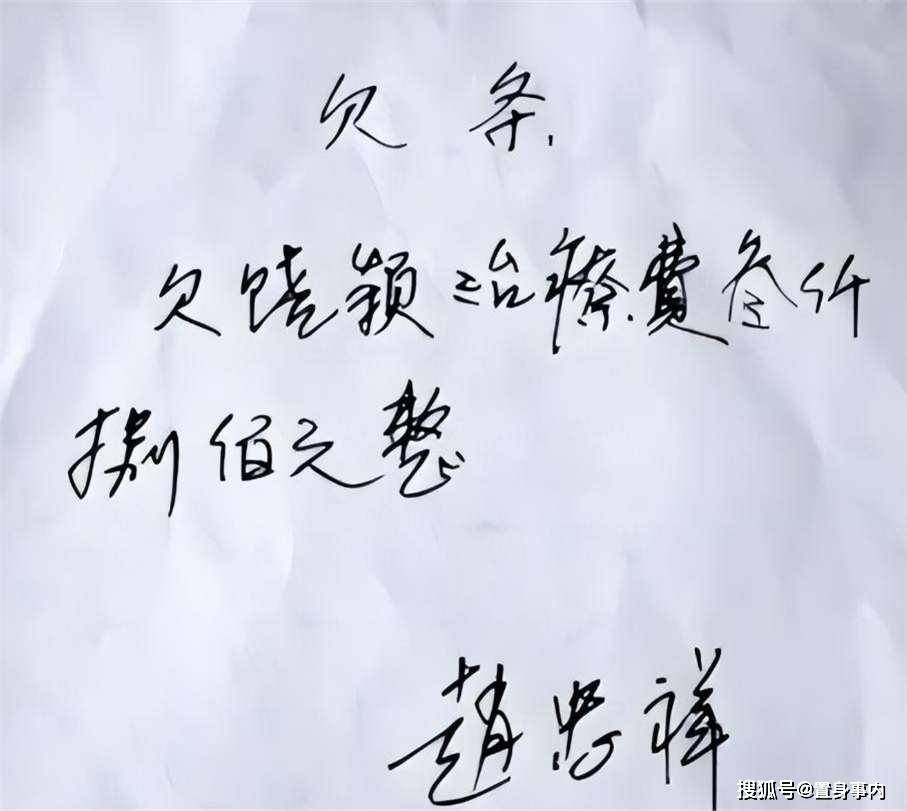 欠条.
欠饶颖治療費叁仟
捌佰元整
趙忠祥
搜狐号@置身事内